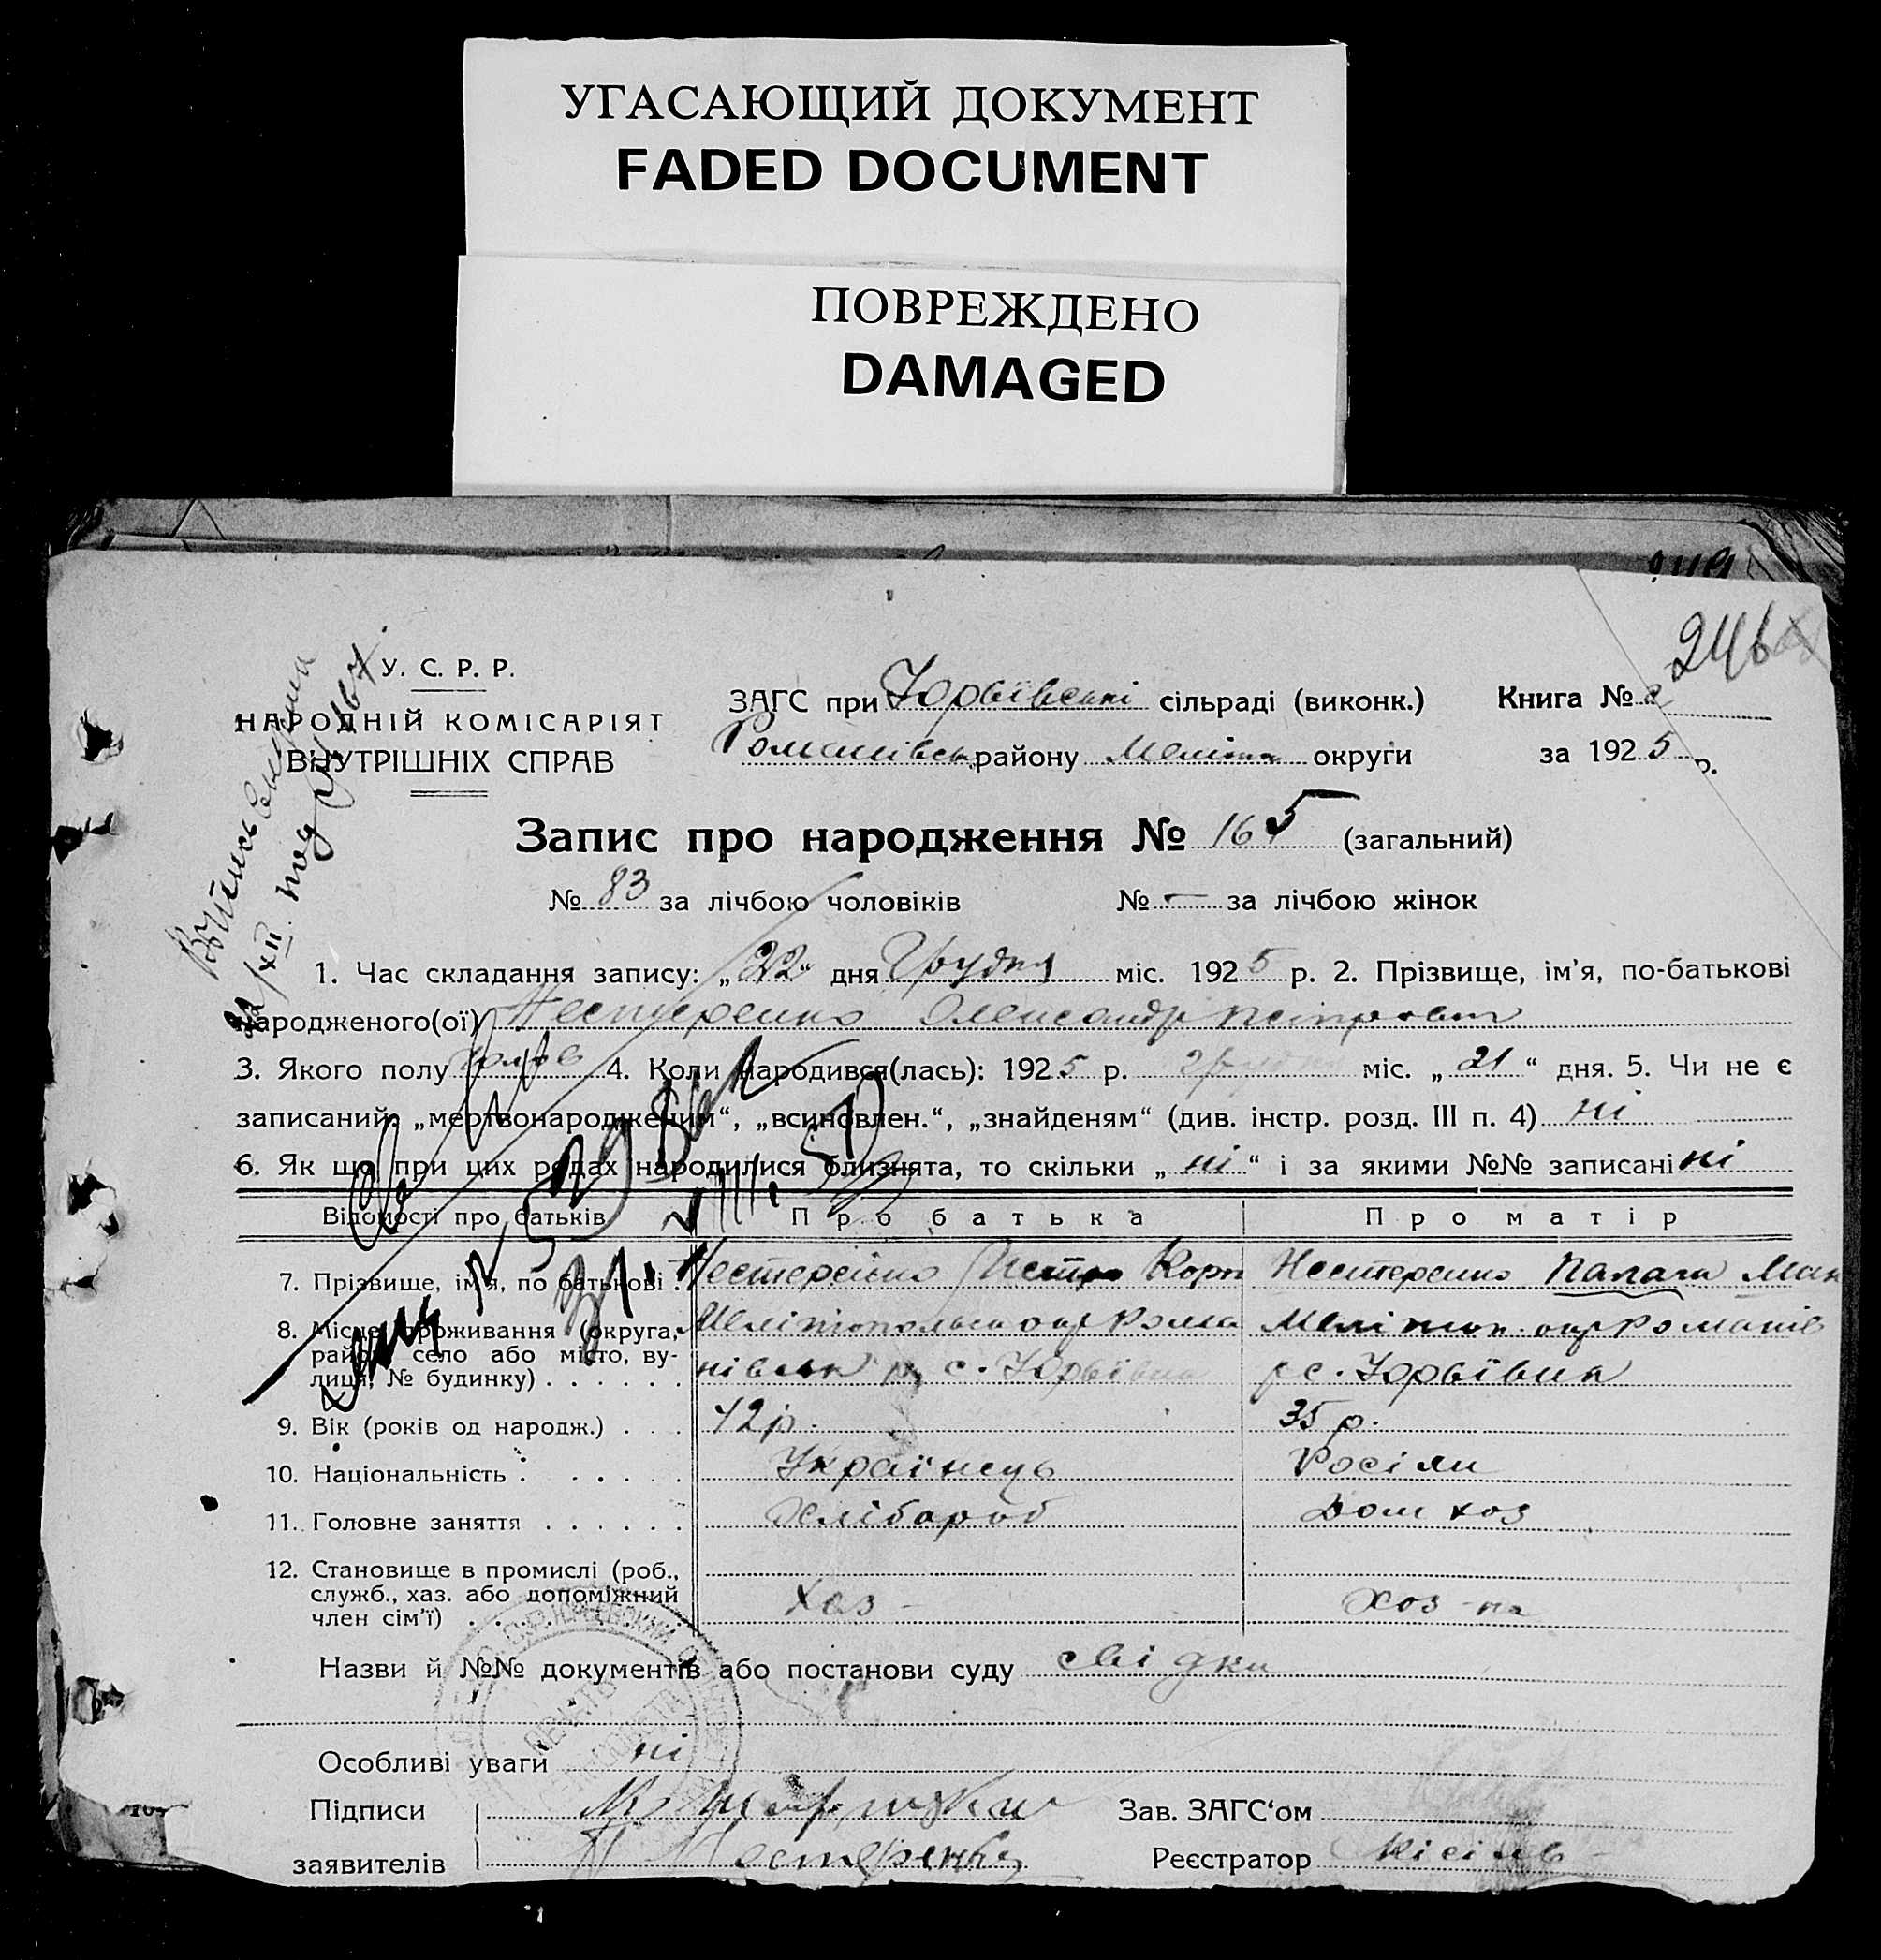 УГАСАЮЩИЙ ДОКУМЕНТ
FADED DOCUMENT
ПОВРЕЖДЕНО
DAMAGED
246
У. С. Р. Р.
НАРОДНІЙ КОМІСАРІЯТ
ВНУТРІШНІХ СПРАВ
ЗАГС при Юрьївські сільраді (виконк.)
Романівськ району Меліт округи
Книга №
за 1925 р.
Запис про народження № 165 (загальний)
№ 83 за лічбою чоловіків № — за лічбою жінок
1. Час складання запису: „22“ дня Грудня міс. 1925 р. 2. Прізвище, ім'я, по-батькові
народженого(ої) Нестеренко Олександр Петрович
3. Якого полу 4. Коли народився(лась): 1925 р. грудня міс. „21“ дня. 5. Чи не є
записаний: „мертвонародженим“, „всиновлен.“, „знайденям“ (див. інстр. розд. III п. 4) ні
6. Як що при цих родах народилися близнята, то скільки „ні“ і за якими №№ записані ні
Відомості про батьків Про батька Про матір
7. Прізвище, ім'я, по батькові . Нестеренко Петро Корн Нестеренко Палага
8. Місце проживання (округа, район, село або місто, вулиця, № будинку) . . . . . .
Мелітопольск окр Рома Мелітоп. окр Романів
нівськ р, с. Юрьївка р с. Юрьївка
9. Вік (років од народж.) . . . 42 р. 35 р.
10. Національність . . . . . . Українець Росіян
11. Головне заняття . . . . . . Хлібароб Дом хоз
12. Становище в промислі (роб.,
служб., хаз. або допоміжний
член сім'ї) . . . . . . Хаз - Хоз-ка
Назви й №№ документів або постанови суду свідки
Особливі уваги ні
Підписи Зав. ЗАГС‘ом
заявителів П Нестеренко Реєстратор Кісіль